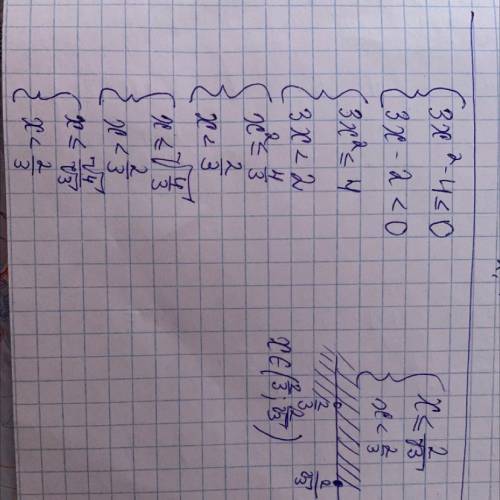 { 3x² - 4 ≤ 0
{ 3x - 2 < 0
{ 3x² ≤ 4
{ 3x < 2
{ x² ≤ 4/3
{ x < 2/3
{ x ≤ √(4/3)
{ x < 2/3
{ x ≤ √4/√3
{ x < 2/3
{ x ≤ 2/√3
{ x < 2/3
2/3 2/√3
x ∈ (2/3; 2/√3)